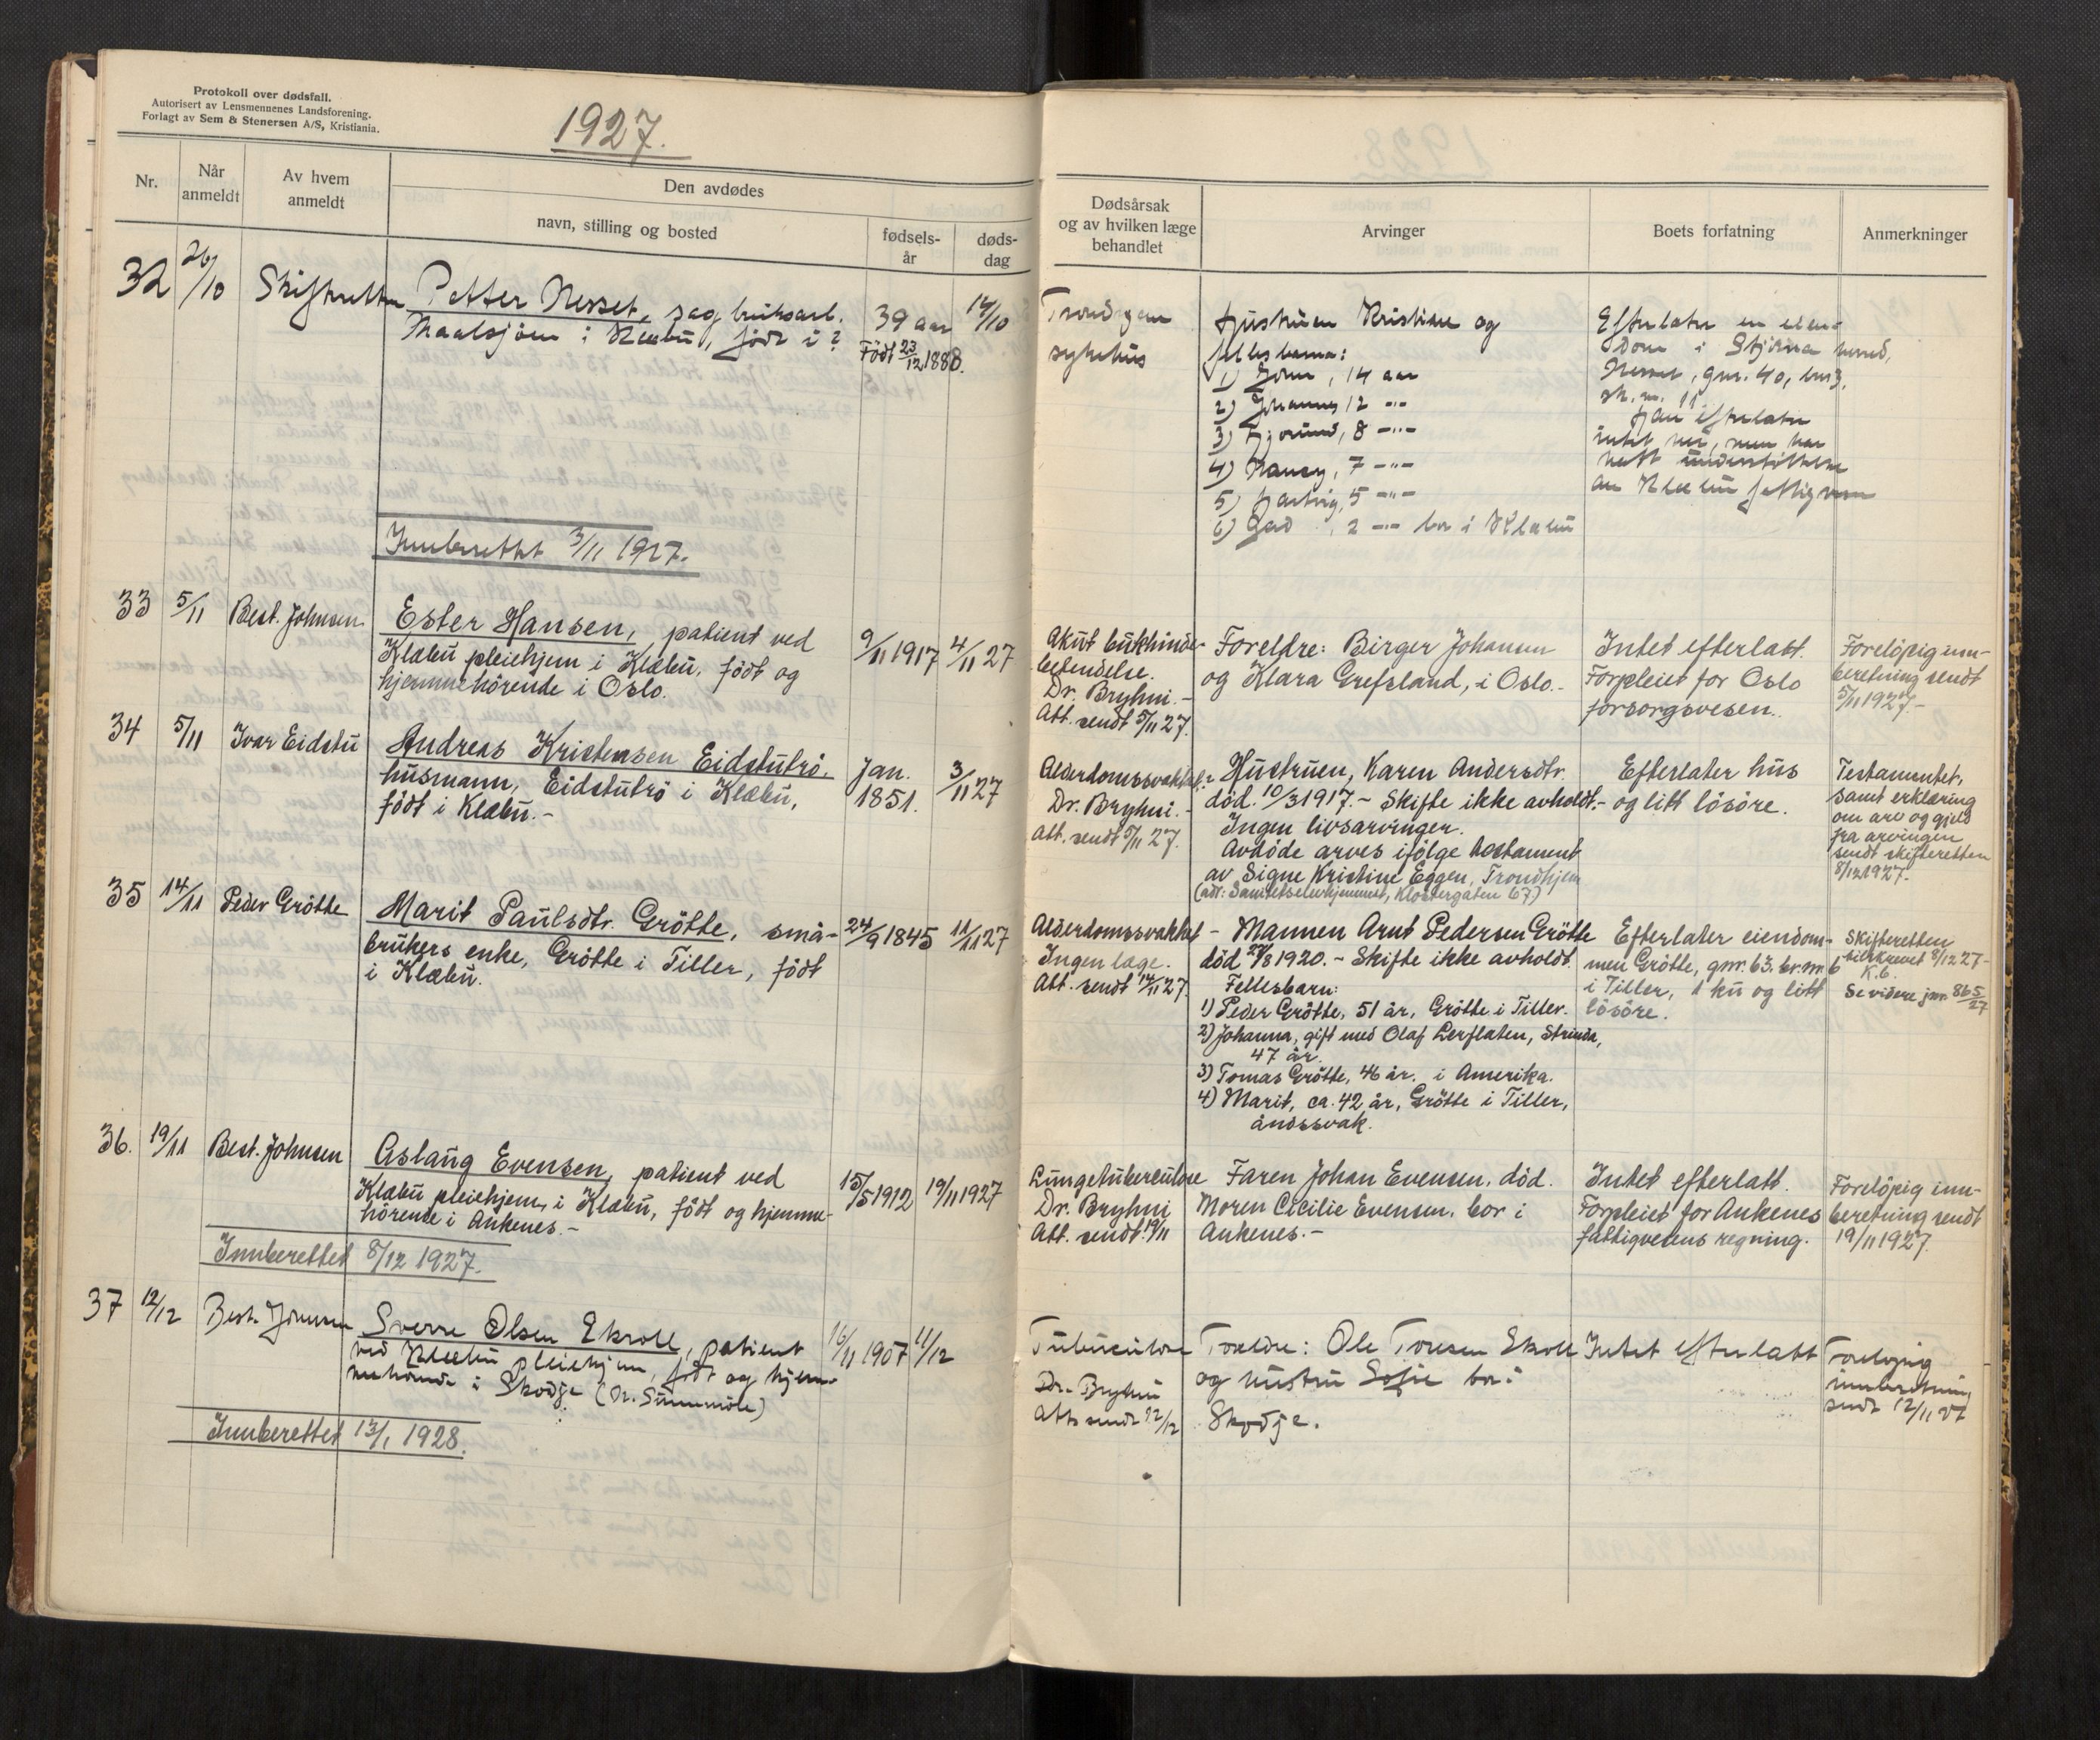 Protokoll over dødsfall.
Autorisert av Lensmennenes Landsforening.
Forlagt av Sem & Stenersen A/S, Kristiania.
1927.
Nr.
Når anmeldt
Av hvem anmeldt
Den avdødes
navn, stilling og bosted
fødsels-år
døds-dag
Dødsårsak og av hvilken læge behandlet
Arvinger
Boets forfatning
Anmerkninger
32
26/10
Skifteretten
Petter Nesset, sagbruksarb.
Maalsjöen i Klæbu, född i ?
39 aar
Födt 23/12 1888.
14/10
Trondhjem
sykehus
Hustruen Kristine og
fellesbarna:
1) Johan, 14 aar
2) Johannes 12 -"-
3) 8 -"-
4) 7 -"-
5) Hartvig, 5 -"-
6) 2 -"- bor i Klæbu
Efterlater en eien-
dom i Stjørna herred,
Nesset, gnr. 40, bnr 3,
sk. nr. 11
Han efterlater
intet her, men har
hatt understöttelse
av Klæbu fattigvesen
Innberettet 3/11 1927.
33
5/11
Best. Johnsen
Ester Hansen, patient ved
Klæbu pleiehjem i Klæbu, födt og
hjemmehörende i Oslo.
9/11 1917
4/11 27
Akut bukhinde-
betendelse.
Dr. Bryhni. -
Att. sendt 5/11 27.
Foreldre: Birger Johansen
og Klara Grefsland, i Oslo. -
Intet efterlatt.
Forpleiet for Oslo
forsorgsvesen.
Forelöpig inn-
beretning sendt
5/11 1927. -
34
5/11
Ivar Eidstu
Andreas Kristensen Eidstutrö,
husmann, Eidstutrö i Klæbu,
födt i Klæbu. -
Jan.
1851.
3/11 27
Alderdomssvakhet -
Dr. Bryhni. -
Att. sendt 5/11 27.
Hustruen, Karen Andersdtr.
död. 10/3 1917. - Skifte ikke avholdt. -
Ingen livsarvinger.
Avdöde arves ifölge testament
av Signe Kristine Eggen, Trondhjem
(adr: Sanitetselevhjemmet, Klostergaten 67)
Efterlater hus
og litt lösöre.
Testamentet,
samt erklæring
om arv og gjeld
fra arvingen
sendt skifteretten
8/12 1927.
35
14/11
Peder Grötte
Marit Paulsdtr. Grötte, små-
brukers enke, Grötte i Tiller, födt
i Klæbu.
24/9 1845
11/11 27
Alderdomssvakhet
Ingen læge.
Att. sendt 14/11 27.
- Mannen Arnt Pedersen Grötte
död 28/8 1920. - Skifte ikke avholdt.
Fellesbarn:
1) Peder Grötte, 51 år, Grötte i Tiller.
2) Johanna, gift med Olaf Lerflaten, Strinda,
47 år.
3) Tomas Grötte, 46 år. i Amerika.
4) Marit, ca. 42 år, Grötte i Tiller,
åndssvak.
Efterlater eiendom-
men Grötte, gnr. 63. br. nr. 6
i Tiller, 1 ku og litt
lösöre.
Skifteretten
tilskrevet 8/12 27 -
K.6.
Se videre jnr. 865/27
36.
19/11
Best. Johnsen
Aslaug Evensen, patient ved
Klæbu pleiehjem, i Klæbu, födt og hjemme-
hörende i Ankenes. -
15/5 1912
19/11 1927
Lungetuberculose
Dr. Bryhni
Att. sendt 19/11
Faren Johan Evensen, död.
Moren Cecilie Evensen, bor i
Ankenes. -
Intet efterlatt.
Forpleiet for Ankenes
fattigvesens regning.
Forelöpig inn-
beretning sendt
19/11 1927.
Innberettet 8/12 1927.
37
12/12
Best. Johnsen
Sverre Olsen Ekroll, patient
ved Klæbu pleiehjem, födt og hjem-
mehörende i Skodje (N. Sunnmöre)
16/11 1907
11/12
Tuberculose
Dr. Bryhni
Att. sendt 12/12
Foreldre: Ole Toresen Ekroll
og hustru Sofie bor i
Skodje.
Intet efterlatt
Forelöpig
innberetning
sendt 12/11 27
Innberettet 13/1 1928.